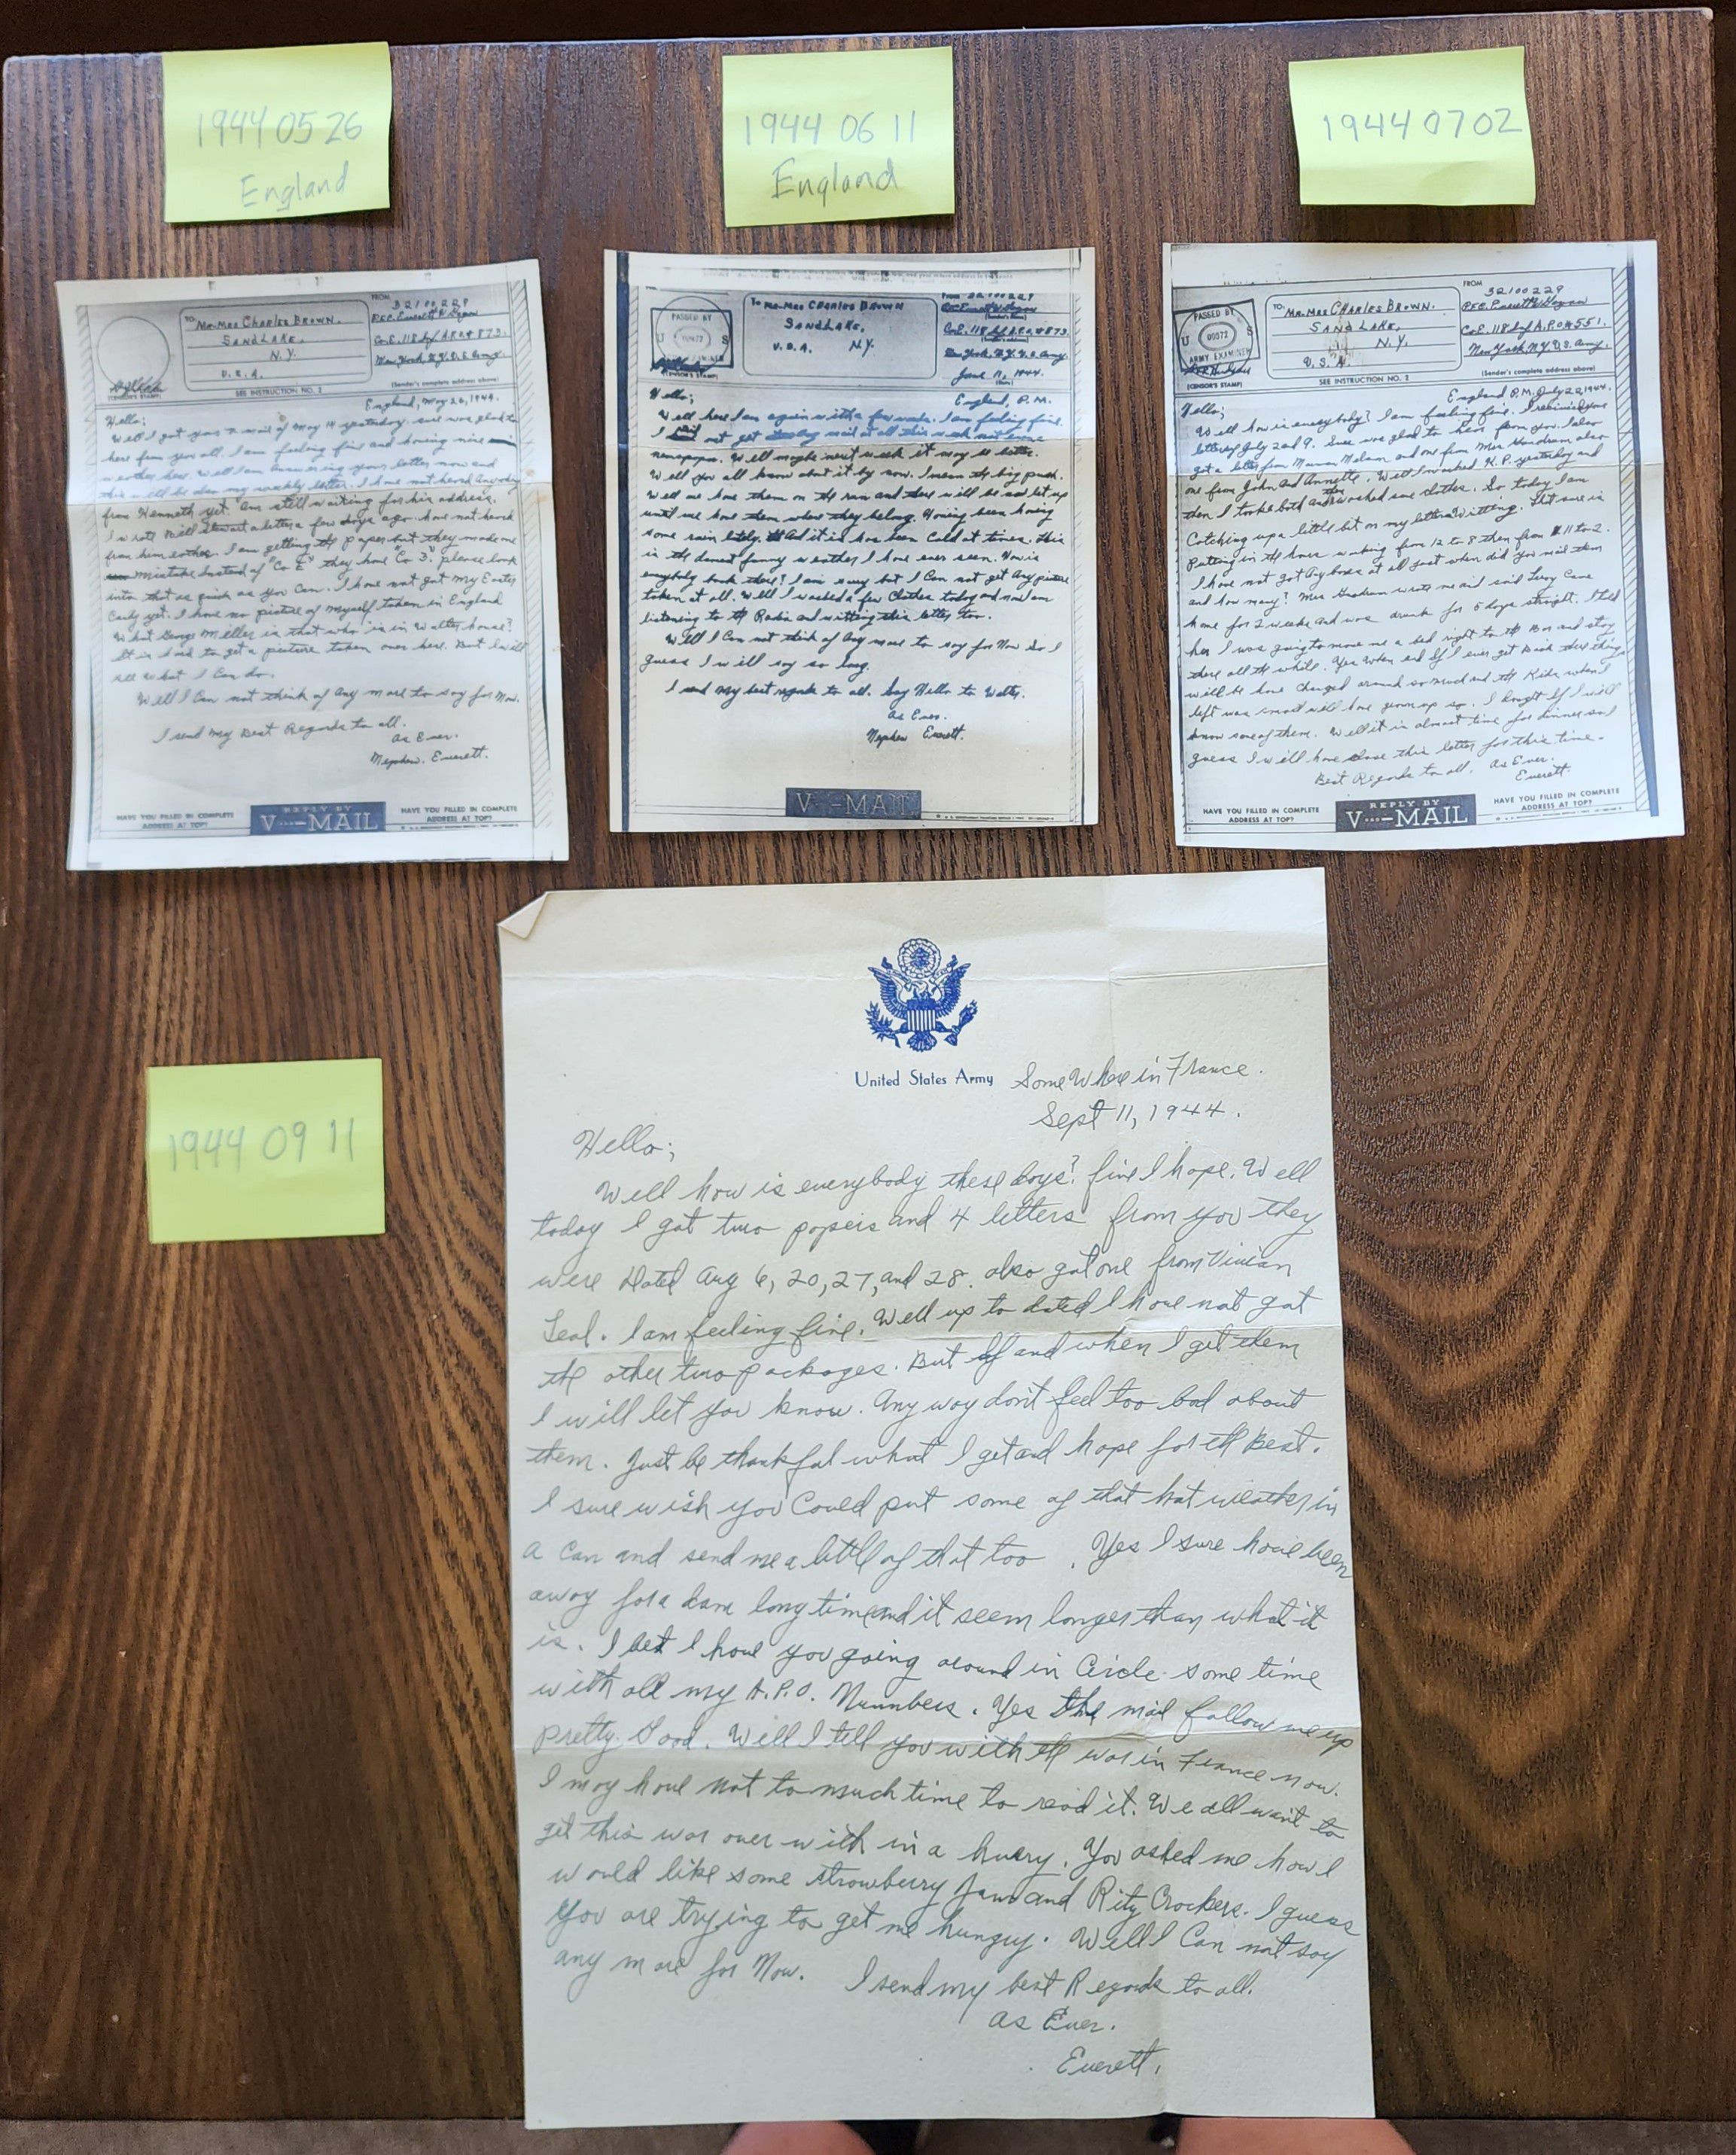 1944 05 26
England
1944 06 11
England
1944 07 02
TO: Mr. Mrs Charles Brown.
Sand Lake,
N.Y.
U.S.A.
FROM
32100229
P.F.C. Everett W. Hogan
Co. E. 118 Inf A.P.O. # 873.
New York, N.Y. U.S. Army.
(CENSOR'S STAMP)
SEE INSTRUCTION NO. 2
(Sender's complete address above)
England, May 26, 1944.
Hello;
Well I got your V mail of May 14 yesterday. sure was glad to
hear from you all. I am feeling fine and having nice
weather here. Well I am answering your letter now and
this will be also my weekly letter. I have not heard any
from Kenneth yet. Am still waiting for his address.
I wrote Will Stewart a letter a few days ago. have not heard
from him either. I am getting the paper but they made one
mistake instead of "Co E" they have "Co 3". please look
into that as quick as you can. I have not got my Easter
Card yet. I have no picture of myself taken in England
What George Miller is that who is in Walter house?
It is hard to get a picture taken over here. But I will
see what I can do.
Well I Can not think of Any more to say for Now.
I send My Best Regards to all.
As Ever.
Nephew. Everett.
HAVE YOU FILLED IN COMPLETE
ADDRESS AT TOP?
REPLY BY
V···—MAIL
HAVE YOU FILLED IN COMPLETE
ADDRESS AT TOP?
PASSED BY
U S
ARMY EXAMINER
(CENSOR'S STAMP)
To Mr. Mrs Charles Brown
Sand Lake,
U.S.A. N.Y.
From 32100229
Pfc. Everett W. Hogan
(Sender's name)
Co. E. 118 Inf A.P.O. # 873.
(Sender's address)
New York, N.Y. U.S. Army.
June 11, 1944.
(Date)
Hello; England, P.M.
Well here I am again with a few words. I am feeling fine.
I did not get any mail at all this week not even
newspapers. Well maybe next week it may be better.
Well you all know about it by now. I mean the big push.
Well we have them on the run and there will be no let up
until we have them where they belong. Having been having
some rain lately. And it is has been Cold at times. This
is the darnest funny weather I have ever seen. How is
everybody back there? I am sorry but I Can not get Any picture
taken at all. Well I washed a few Clothes today and now I am
listening to the Radio and writting this letter too.
Well I Can not think of Any more to say for Now So I
guess I will say so long.
I send My best regards to all. Say Hello to Walter.
As Ever.
Nephew Everett.
V···—MAIL
PASSED BY
U 00572 S
ARMY EXAMINER
(CENSOR'S STAMP)
TO: Mr. Mrs Charles Brown.
Sand Lake,
N.Y.
U.S.A.
SEE INSTRUCTION NO. 2
FROM
32100229
P.F.C. Everett W. Hogan
Co. E. 118 Inf A.P.O. # 551.
New York, N.Y. U.S. Army.
(Sender's complete address above)
England P.M. July 22, 1944.
Hello;
Well how is everybody? I am feeling fine. I received your
letters of July 2 and 9. Sure was glad to hear from you. I also
got a letter from Marian and one from Mrs also
one from John and Annette. Well I worked K.P. yesterday and
then I took a bath and then washed some clothes. So today I am
Catching up a little bit on my letters Writting. That sure is
Putting in the hours working from 12 to 8 then from 11 to 2.
I have not got Any boxes at all just when did you mail them
and how many? Mrs wrote me and said Leroy Came
home for 2 weeks and was drunk for 5 days straight. I told
her I was going to move me a bed right to the Bar and stay
there all the while. Yes When and If I ever get Back there things
will be have changed around so much and the Kids when I
left was small will have grown up so. I know
some of them. Well it is almost time for dinner so I
guess I will have close this letter for this time.
Best Regards to all. As Ever.
Everett.
HAVE YOU FILLED IN COMPLETE
ADDRESS AT TOP?
REPLY BY
V···—MAIL
HAVE YOU FILLED IN COMPLETE
ADDRESS AT TOP?
1944 09 11
United States Army
Some Where in France.
Sept 11, 1944.
Hello;
Well how is everybody these days? fine I hope. Well
today I got two papers and 4 letters from you they
were Dated Aug 6, 20, 27, and 28. also got one from Vivian
Teal. I am feeling fine. Well up to dated I have not got
the other two packages. But If and when I get them
I will let you know. Any way don't feel too bad about
them. Just be thankful what I get and hope for the Best.
I sure wish you Could put some of that hot weather in
a Can and send me a little of that too. Yes I sure have been
away for a darn long time and it seem longer than what it
is. I bet I have you going around in Circle some time
with all my A.P.O. Nunnbers. Yes the mail follow me up
Pretty Good. Well I tell you with the war in France now.
I may have not to much time to read it. We all want to
get this war over with in a hurry. You asked me how I
would like some strawberry Jam and Ritz Crackers. I guess
You are trying to get me hungry. Well I Can not say
any more for Now. I send my best Regards to all.
As Ever.
Everett.